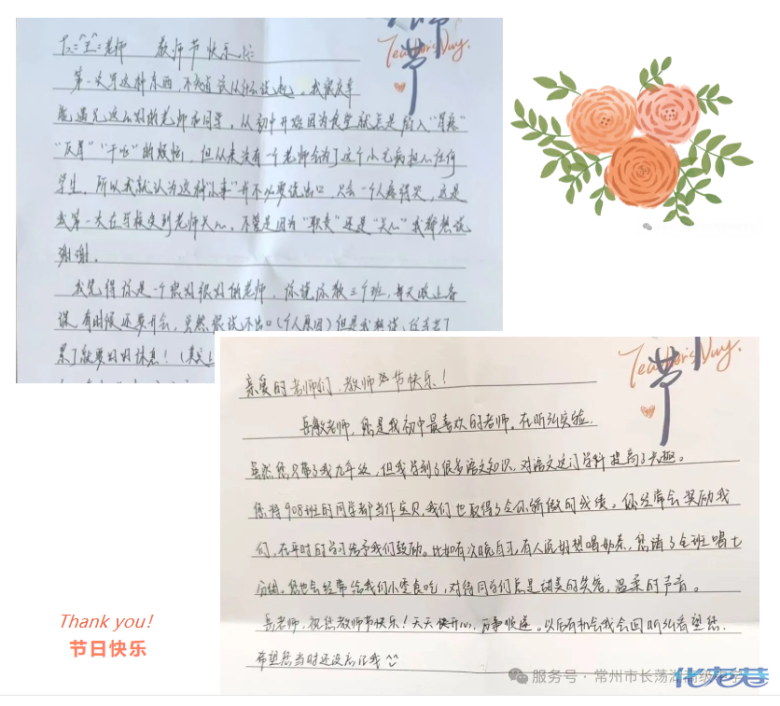 To:^王^老师 教师节快乐
节
Teacher's Day.
第一次写这种东西,不知道该从什么说起,我很庆幸
能遇见这么好的老师和同学。从初中开始因为食堂就总是陷入"胃痛"
"反胃""干呕"的烦恼,但从来没有一个老师会为了这个小毛病担心任何
学生。所以我就认为这种"小事"并不必要说出口,只会一个人难得哭,这是
我第一次在学校受到老师关心。不管是因为"职责"还是"关心"我都想说
谢谢。
我觉得你是一个很好很好的老师,你说你教三个班,每天晚上备
课,有时候还要开会,
累了就要好好休息!
Teacher's Day.
节
亲爱的老师们,教师节快乐!
岳敏老师,您是我初中最喜欢的老师。在昕弘实验
虽然您只带了我九年级,但我学到了很多语文知识,对语文这门学科提高了兴趣。
您将908班的同学都当作宝贝,我们也取得了令你骄傲的成绩。你经常会奖励我
们,在平时的学习给予我们鼓励。比如有次晚自习,有人说好想喝奶茶,您请了全班喝七
分甜。您也会经常给我们小零食吃,对待同学们总是甜美的笑容,温柔的声音。
岳老师,祝您教师节快乐!天天快开心,万事顺遂。以后有机会我会回昕弘看望您,
希望您当时还没忘记我^^
Thank you!
节日快乐
服务号 · 常州市长荡湖高级中学
化龙巷